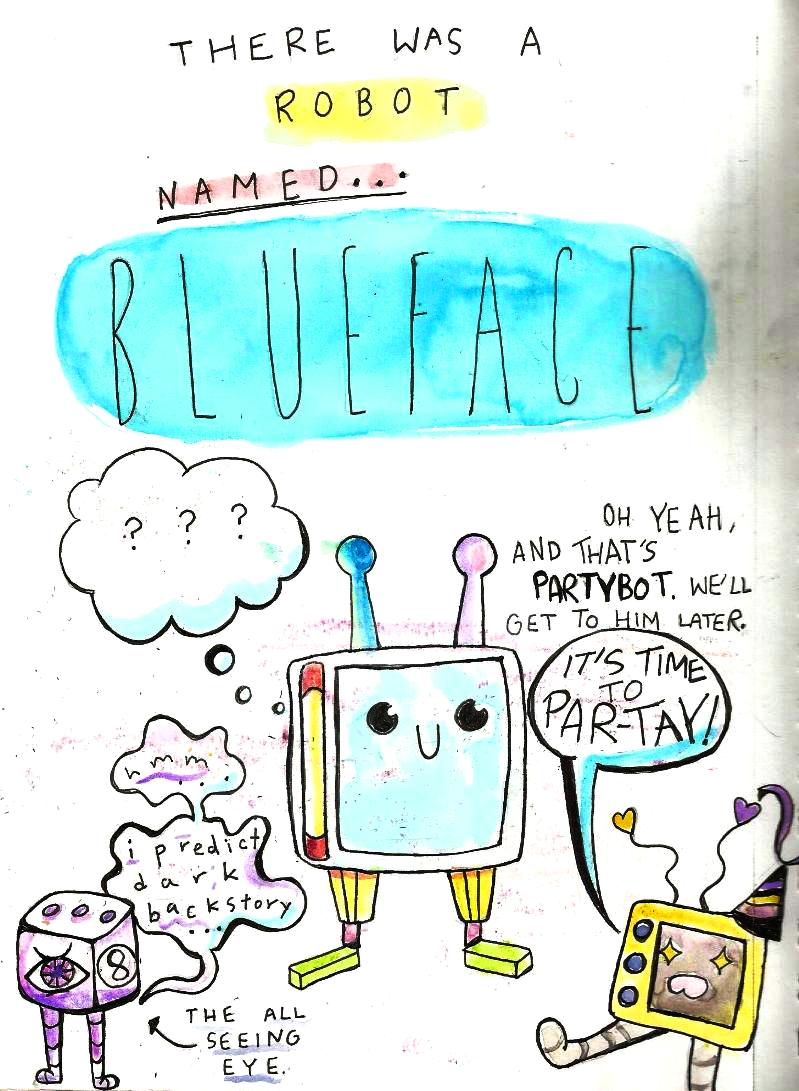 THERE WAS A
ROBOT
NAMED...
BLUEFACE
? ? ?
OH YEAH,
AND THAT'S
PARTYBOT. WE'LL
GET TO HIM LATER.
IT'S TIME
TO
PAR-TAY!
hmm...
i predict
dark
backstory
...
8
THE ALL
SEEING
EYE.